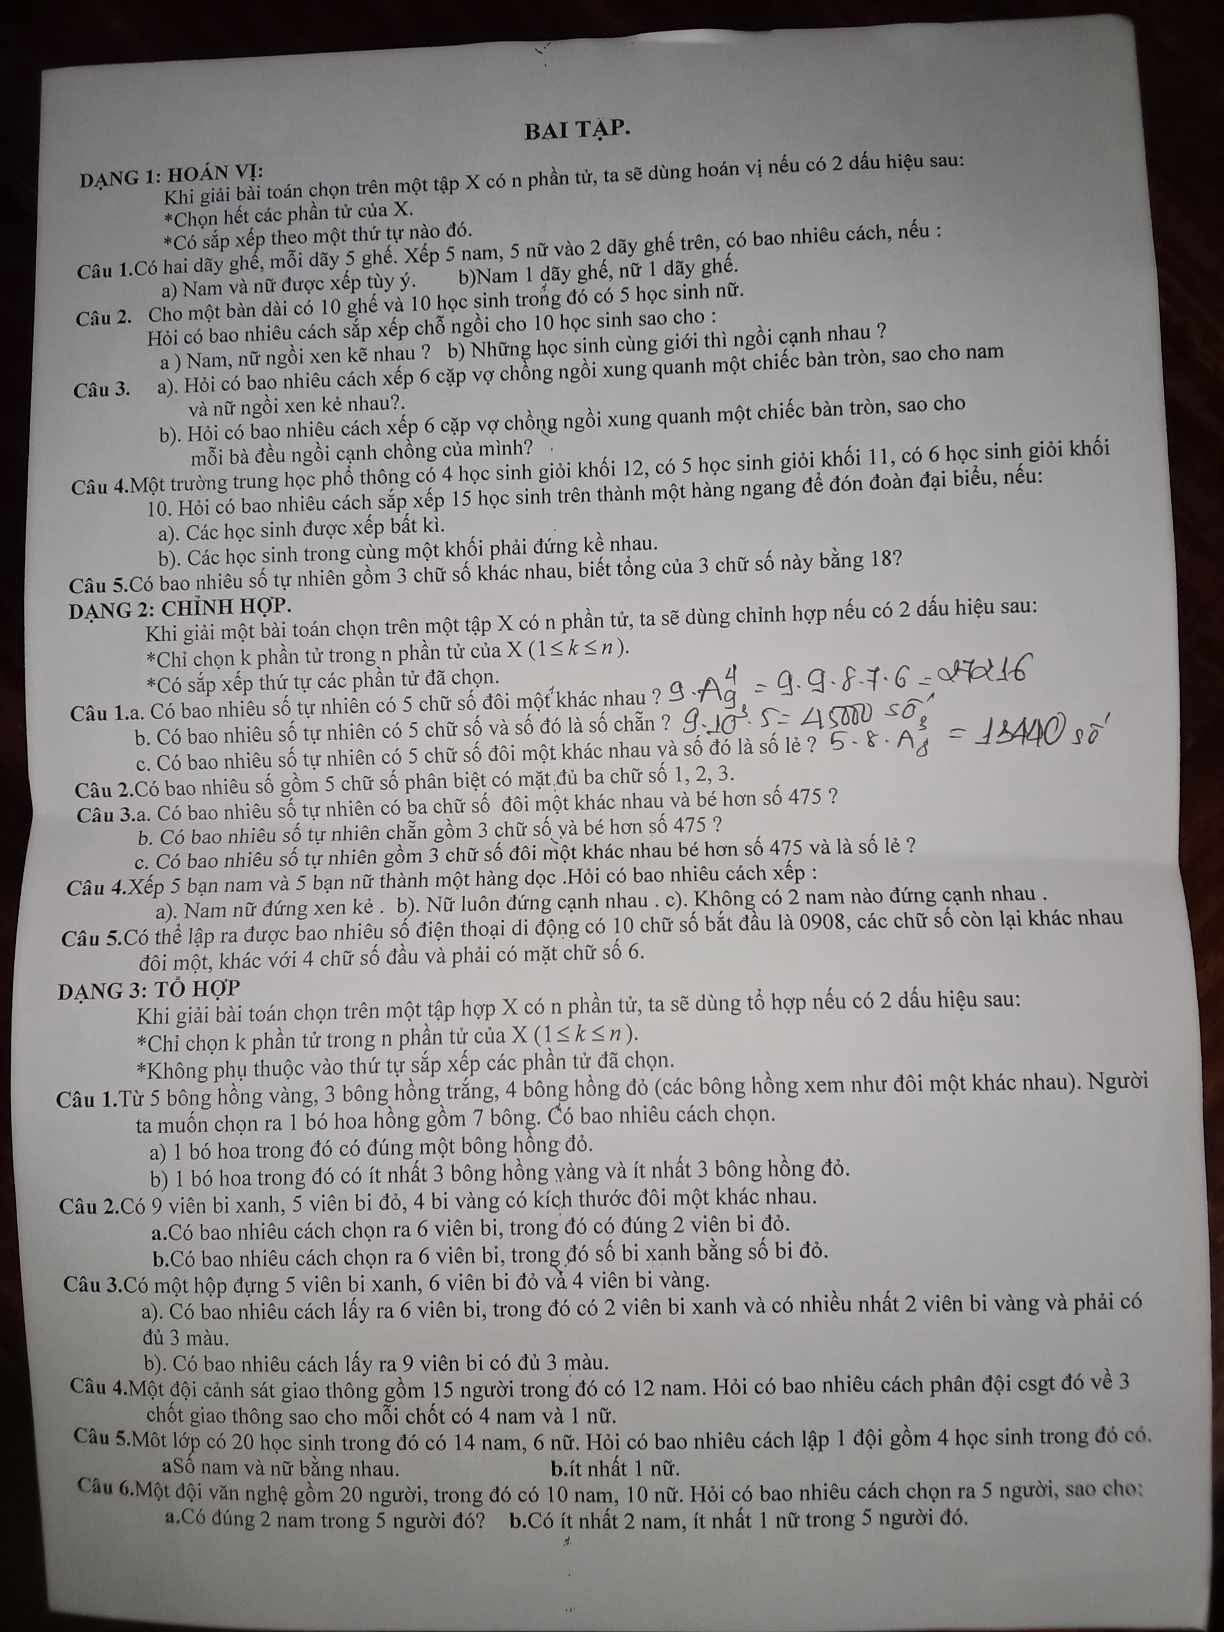 BAI TẬP.
DẠNG 1: HOÁN VỊ:
Khi giải bài toán chọn trên một tập X có n phần tử, ta sẽ dùng hoán vị nếu có 2 dấu hiệu sau:
*Chọn hết các phần tử của X.
*Có sắp xếp theo một thứ tự nào đó.
Câu 1.Có hai dãy ghế, mỗi dãy 5 ghế. Xếp 5 nam, 5 nữ vào 2 dãy ghế trên, có bao nhiêu cách, nếu :
a) Nam và nữ được xếp tùy ý. b)Nam 1 dãy ghế, nữ 1 dãy ghế.
Câu 2. Cho một bàn dài có 10 ghế và 10 học sinh trong đó có 5 học sinh nữ.
Hỏi có bao nhiêu cách sắp xếp chỗ ngồi cho 10 học sinh sao cho :
a ) Nam, nữ ngồi xen kẽ nhau ? b) Những học sinh cùng giới thì ngồi cạnh nhau ?
Câu 3. a). Hỏi có bao nhiêu cách xếp 6 cặp vợ chồng ngồi xung quanh một chiếc bàn tròn, sao cho nam
và nữ ngồi xen kẻ nhau?.
b). Hỏi có bao nhiêu cách xếp 6 cặp vợ chồng ngồi xung quanh một chiếc bàn tròn, sao cho
mỗi bà đều ngồi cạnh chồng của mình?
Câu 4.Một trường trung học phổ thông có 4 học sinh giỏi khối 12, có 5 học sinh giỏi khối 11, có 6 học sinh giỏi khối
10. Hỏi có bao nhiêu cách sắp xếp 15 học sinh trên thành một hàng ngang để đón đoàn đại biểu, nếu:
a). Các học sinh được xếp bất kì.
b). Các học sinh trong cùng một khối phải đứng kề nhau.
Câu 5.Có bao nhiêu số tự nhiên gồm 3 chữ số khác nhau, biết tổng của 3 chữ số này bằng 18?
DẠNG 2: CHỈNH HỢP.
Khi giải một bài toán chọn trên một tập X có n phần tử, ta sẽ dùng chỉnh hợp nếu có 2 dấu hiệu sau:
*Chỉ chọn k phần tử trong n phần tử của X (1 ≤ k ≤ n).
*Có sắp xếp thứ tự các phần tử đã chọn.
Câu 1.a. Có bao nhiêu số tự nhiên có 5 chữ số đôi một khác nhau ? 9.A₉⁴ = 9.9.8.7.6 = 27216
b. Có bao nhiêu số tự nhiên có 5 chữ số và số đó là số chẵn ? 9.10³.5 = 45000 số
c. Có bao nhiêu số tự nhiên có 5 chữ số đôi một khác nhau và số đó là số lẻ ? 5.8.A₈³ = 13440 số
Câu 2.Có bao nhiêu số gồm 5 chữ số phân biệt có mặt đủ ba chữ số 1, 2, 3.
Câu 3.a. Có bao nhiêu số tự nhiên có ba chữ số đôi một khác nhau và bé hơn số 475 ?
b. Có bao nhiêu số tự nhiên chẵn gồm 3 chữ số và bé hơn số 475 ?
c. Có bao nhiêu số tự nhiên gồm 3 chữ số đôi một khác nhau bé hơn số 475 và là số lẻ ?
Câu 4.Xếp 5 bạn nam và 5 bạn nữ thành một hàng dọc .Hỏi có bao nhiêu cách xếp :
a). Nam nữ đứng xen kẻ . b). Nữ luôn đứng cạnh nhau . c). Không có 2 nam nào đứng cạnh nhau .
Câu 5.Có thể lập ra được bao nhiêu số điện thoại di động có 10 chữ số bắt đầu là 0908, các chữ số còn lại khác nhau
đôi một, khác với 4 chữ số đầu và phải có mặt chữ số 6.
DẠNG 3: TỔ HỢP
Khi giải bài toán chọn trên một tập hợp X có n phần tử, ta sẽ dùng tổ hợp nếu có 2 dấu hiệu sau:
*Chỉ chọn k phần tử trong n phần tử của X (1 ≤ k ≤ n).
*Không phụ thuộc vào thứ tự sắp xếp các phần tử đã chọn.
Câu 1.Từ 5 bông hồng vàng, 3 bông hồng trắng, 4 bông hồng đỏ (các bông hồng xem như đôi một khác nhau). Người
ta muốn chọn ra 1 bó hoa hồng gồm 7 bông. Có bao nhiêu cách chọn.
a) 1 bó hoa trong đó có đúng một bông hồng đỏ.
b) 1 bó hoa trong đó có ít nhất 3 bông hồng vàng và ít nhất 3 bông hồng đỏ.
Câu 2.Có 9 viên bi xanh, 5 viên bi đỏ, 4 bi vàng có kích thước đôi một khác nhau.
a.Có bao nhiêu cách chọn ra 6 viên bi, trong đó có đúng 2 viên bi đỏ.
b.Có bao nhiêu cách chọn ra 6 viên bi, trong đó số bi xanh bằng số bi đỏ.
Câu 3.Có một hộp đựng 5 viên bi xanh, 6 viên bi đỏ và 4 viên bi vàng.
a). Có bao nhiêu cách lấy ra 6 viên bi, trong đó có 2 viên bi xanh và có nhiều nhất 2 viên bi vàng và phải có
đủ 3 màu.
b). Có bao nhiêu cách lấy ra 9 viên bi có đủ 3 màu.
Câu 4.Một đội cảnh sát giao thông gồm 15 người trong đó có 12 nam. Hỏi có bao nhiêu cách phân đội csgt đó về 3
chốt giao thông sao cho mỗi chốt có 4 nam và 1 nữ.
Câu 5.Môt lớp có 20 học sinh trong đó có 14 nam, 6 nữ. Hỏi có bao nhiêu cách lập 1 đội gồm 4 học sinh trong đó có.
aSố nam và nữ bằng nhau. b.ít nhất 1 nữ.
Câu 6.Một đội văn nghệ gồm 20 người, trong đó có 10 nam, 10 nữ. Hỏi có bao nhiêu cách chọn ra 5 người, sao cho:
a.Có đúng 2 nam trong 5 người đó? b.Có ít nhất 2 nam, ít nhất 1 nữ trong 5 người đó.